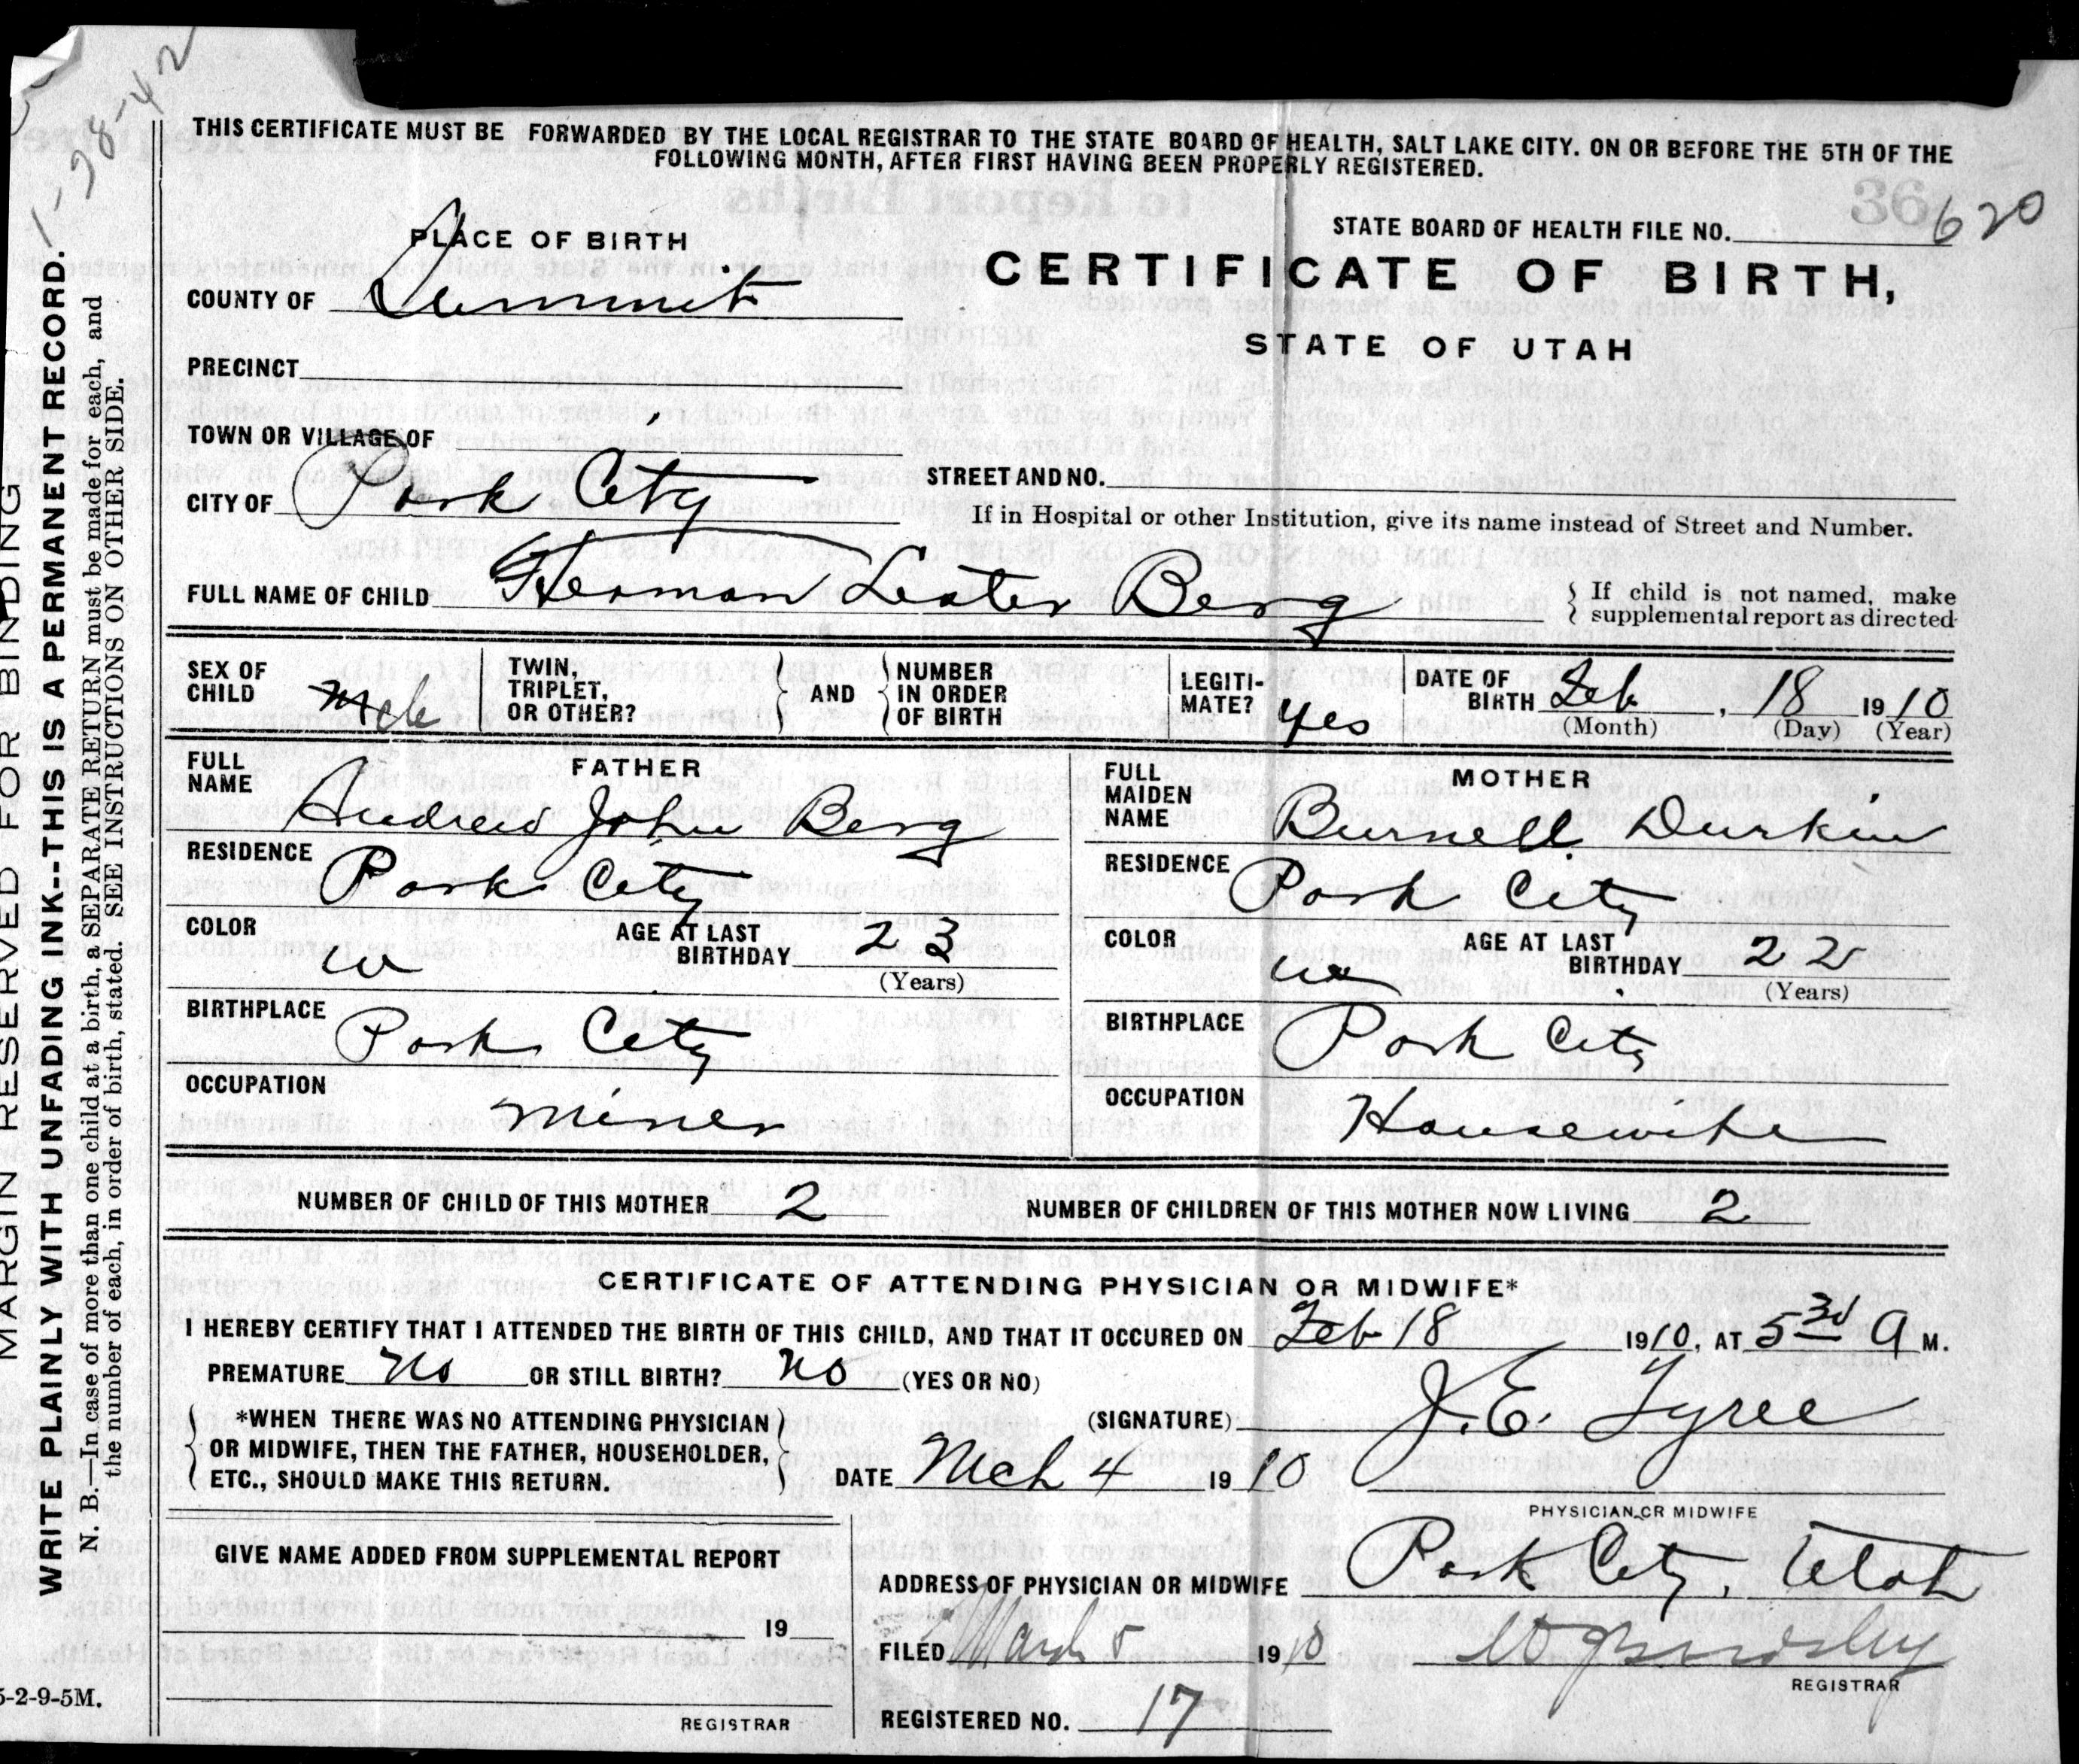 1-28-42
THIS CERTIFICATE MUST BE FORWARDED BY THE LOCAL REGISTRAR TO THE STATE BOARD OF HEALTH, SALT LAKE CITY. ON OR BEFORE THE 5TH OF THE
FOLLOWING MONTH, AFTER FIRST HAVING BEEN PROPERLY REGISTERED.
MARGIN RESERVED FOR BINDING
WRITE PLAINLY WITH UNFADING INK--THIS IS A PERMANENT RECORD.
N. B.—In case of more than one child at a birth, a SEPARATE RETURN must be made for each, and
the number of each, in order of birth, stated. SEE INSTRUCTIONS ON OTHER SIDE.
STATE BOARD OF HEALTH FILE NO. 620
PLACE OF BIRTH
CERTIFICATE OF BIRTH,
COUNTY OF Summit
STATE OF UTAH
PRECINCT
TOWN OR VILLAGE OF
STREET AND NO.
CITY OF Park City
If in Hospital or other Institution, give its name instead of Street and Number.
FULL NAME OF CHILD Herman Lester Berg
If child is not named, make
supplemental report as directed
SEX OF CHILD Male
TWIN, TRIPLET, OR OTHER?
AND
NUMBER IN ORDER OF BIRTH
LEGITI-MATE? yes
DATE OF BIRTH Feb, 18 1910
(Month) (Day) (Year)
FATHER
FULL NAME Andrew John Berg
MOTHER
FULL MAIDEN NAME Burnell Durkin
RESIDENCE Park City
RESIDENCE Park City
COLOR w AGE AT LAST BIRTHDAY 23 (Years)
COLOR w AGE AT LAST BIRTHDAY 22 (Years)
BIRTHPLACE Park City
BIRTHPLACE Park City
OCCUPATION Miner
OCCUPATION Housewife
NUMBER OF CHILD OF THIS MOTHER 2 NUMBER OF CHILDREN OF THIS MOTHER NOW LIVING 2
CERTIFICATE OF ATTENDING PHYSICIAN OR MIDWIFE*
I HEREBY CERTIFY THAT I ATTENDED THE BIRTH OF THIS CHILD, AND THAT IT OCCURED ON Feb 18 1910, AT 5 30 A M.
PREMATURE No OR STILL BIRTH? No (YES OR NO)
*WHEN THERE WAS NO ATTENDING PHYSICIAN
OR MIDWIFE, THEN THE FATHER, HOUSEHOLDER,
ETC., SHOULD MAKE THIS RETURN.
(SIGNATURE) J. E. Tyree
DATE Mch 4 1910
PHYSICIAN OR MIDWIFE
GIVE NAME ADDED FROM SUPPLEMENTAL REPORT
ADDRESS OF PHYSICIAN OR MIDWIFE Park City, Utah
19
FILED March 5 1910
REGISTRAR
REGISTERED NO. 17
REGISTRAR
5-2-9-5M.